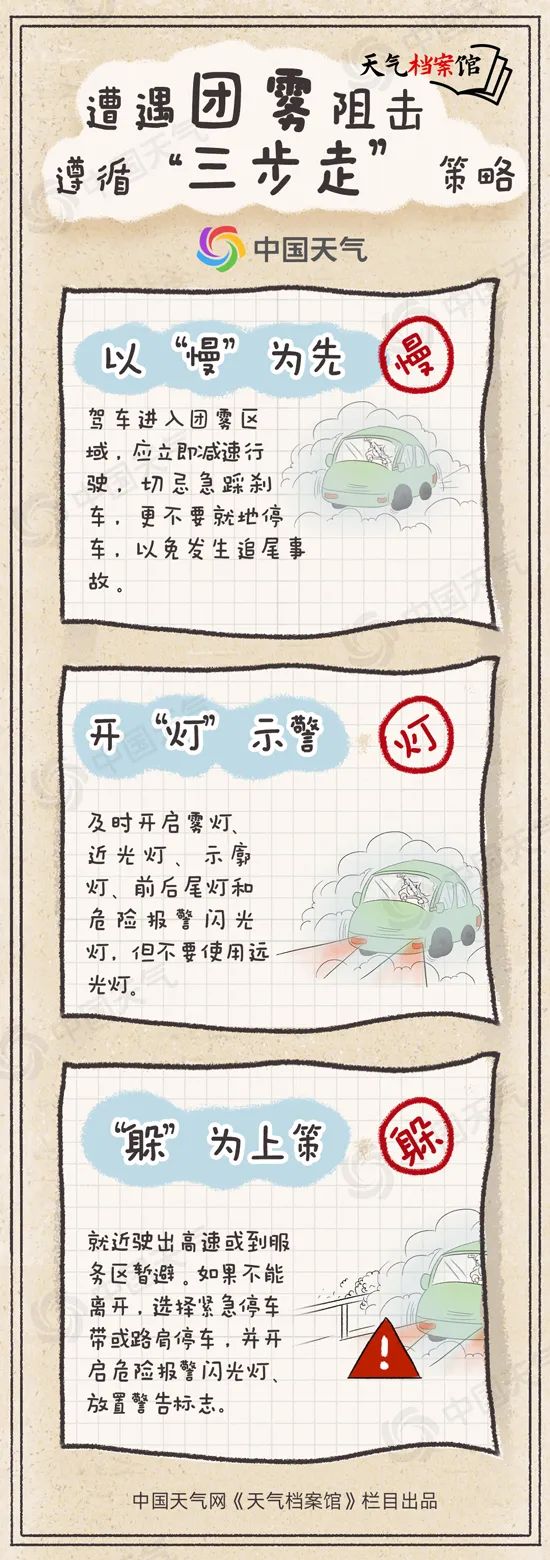 天气档案馆
遭遇团雾阻击
遵循“三步走”策略
中国天气
以“慢”为先
慢
驾车进入团雾区
域，应立即减速行
驶，切忌急踩刹
车，更不要就地停
车，以免发生追尾事
故。
开“灯”示警
灯
及时开启雾灯、
近光灯、示廓
灯、前后尾灯和
危险报警闪光
灯，但不要使用远
光灯。
“躲”为上策
躲
就近驶出高速或到服
务区暂避。如果不能
离开，选择紧急停车
带或路肩停车，并开
启危险报警闪光灯、
放置警告标志。
!
中国天气网《天气档案馆》栏目出品